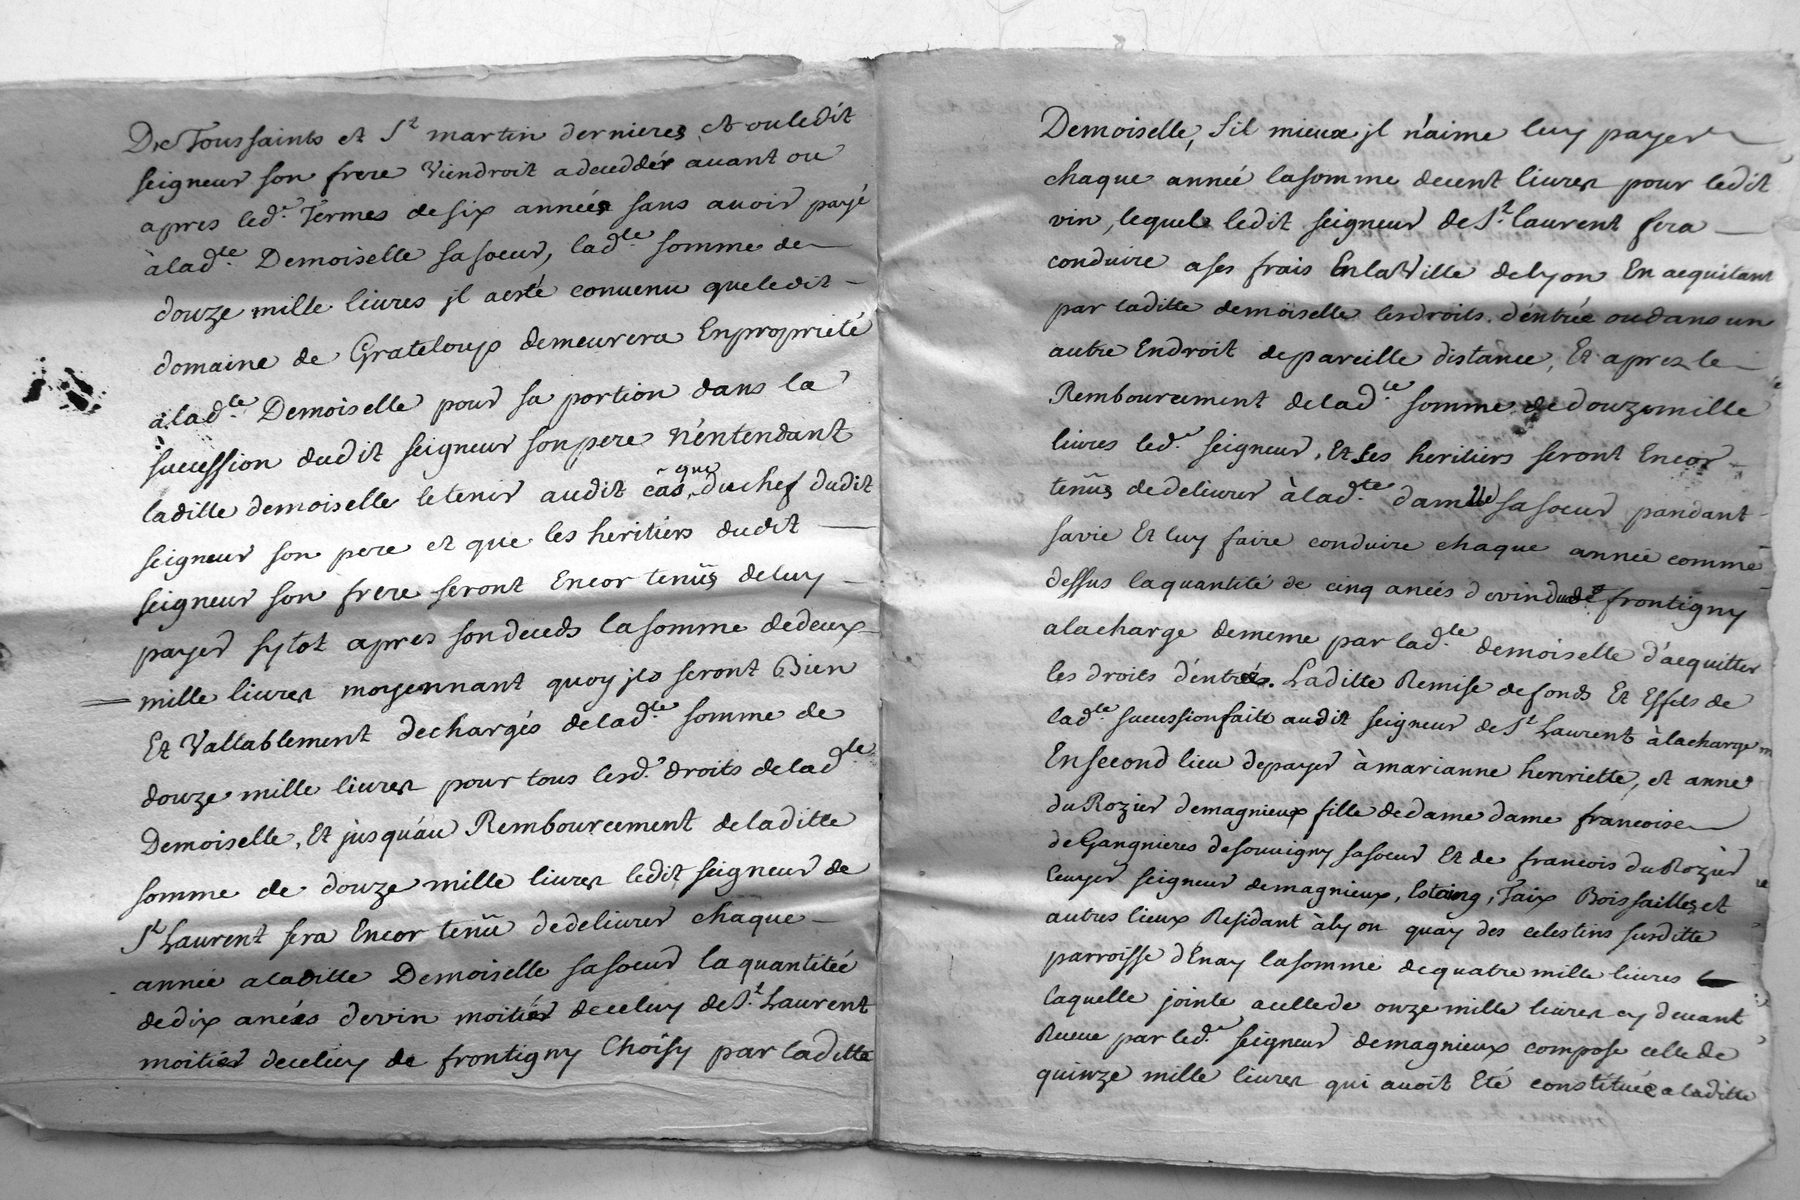 De Toussaints et St martin dernieres et ou ledit
seigneur son frere Viendroit a deceddér avant ou
apres led.t Termes de six années sans avoir payé
à lad.te Demoiselle sa soeur, lad.te somme de
douze mille livres jl a esté convenu que ledit
domaine de Grateloup demeurera En propriété
à lad.te Demoiselle pour sa portion dans la
sucession dudit seigneur son pere n'entendant
laditte demoiselle le tenir audit cas que du chef dudit
seigneur son pere et que les heritiers dudit
seigneur son frere seront Encor tenüs de luy
payer sytot apres son deceds la somme de deux
mille livres moyennant quoy jls seront Bien
Et Vallablement dechargés de lad.te somme de
douze mille livres pour tous lesd.s droits de lad.te
Demoiselle, Et jusqu'au Rembourcement de laditte
somme de douze mille livres ledit seigneur de
St Laurent sera Encor tenü de delivrer chaque
année a laditte Demoiselle sa soeur la quantitée
de dix anées de vin moitiér de celuy de St Laurent
moitiér de celuy de frontigny Choisy par laditte
Demoiselle, sil mieux jl n'aime luy payer
chaque année la somme de cent livres pour ledit
vin, lequel ledit seigneur de St laurent fera
conduire a ses frais En la Ville de lyon En acquitant
par laditte demoiselle les droits d'éntrée ou dans un
autre Endroit de pareille distance, Et apres le
Rembourcement de lad.te somme de douze mille
livres led.t seigneur, Et ses heritiers seront Encor
tenüs de delivrer à lad.te damlle sa soeur pandant
sa vie Et luy faire conduire chaque année comme
dessus la quantité de cinq anées de vin dud.t frontigny
a la charge de meme par lad.te demoiselle d'acquitter
les droits d'éntrés. Laditte Remise de fonds Et Effets de
lad.te sucession faite audit seigneur de St Laurent à la charge
En second lieu de payer à marianne henriette, et anne
du Rozier de magnieux fille de dame dame francoise
de Gangnieres de souvigny sa soeur Et de francois du Rozier
Ecuyer seigneur de magnieux, Estaing, Faix Boissailles et
autres lieux Residant à lyon quay des celestins susditte
parroisse d'Enay la somme de quatre mille livres
laquelle jointe a celle de onze mille livres cy devant
Receue par led.t seigneur de magnieux compose celle de
quinze mille livres qui avoit Eté constituée a laditte